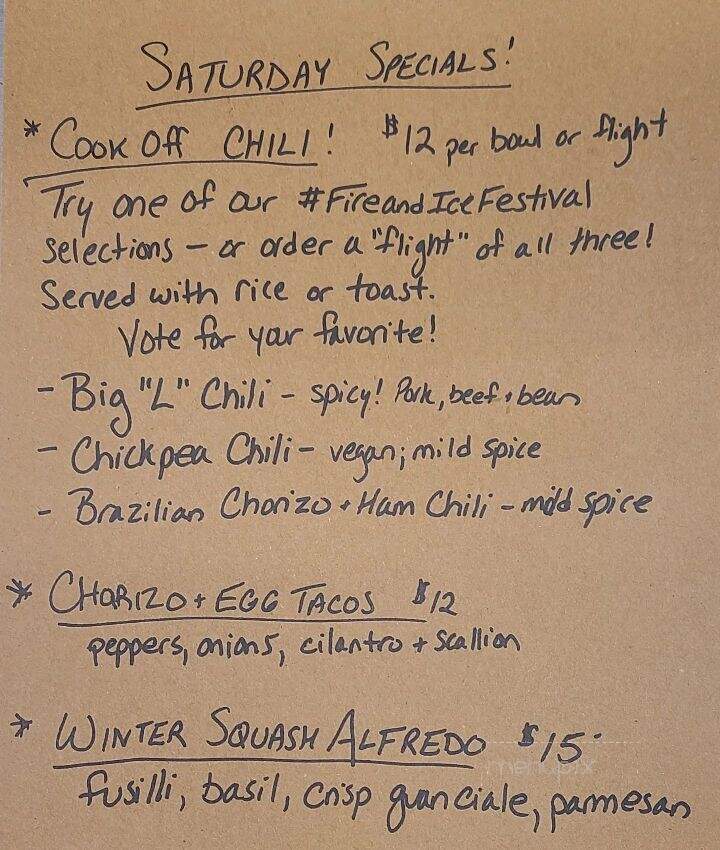 SATURDAY SPECIALS!
* COOK OFF CHILI! $12 per bowl or flight
Try one of our #FireandIceFestival
selections – or order a "flight" of all three!
Served with rice or toast.
Vote for your favorite!
- Big "L" Chili - spicy! Pork, beef + bean
- Chickpea Chili - vegan; mild spice
- Brazilian Chorizo + Ham Chili - mild spice
* CHORIZO + EGG TACOS $12
peppers, onions, cilantro + scallion
* WINTER SQUASH ALFREDO $15
menupix
fusilli, basil, crisp guanciale, parmesan